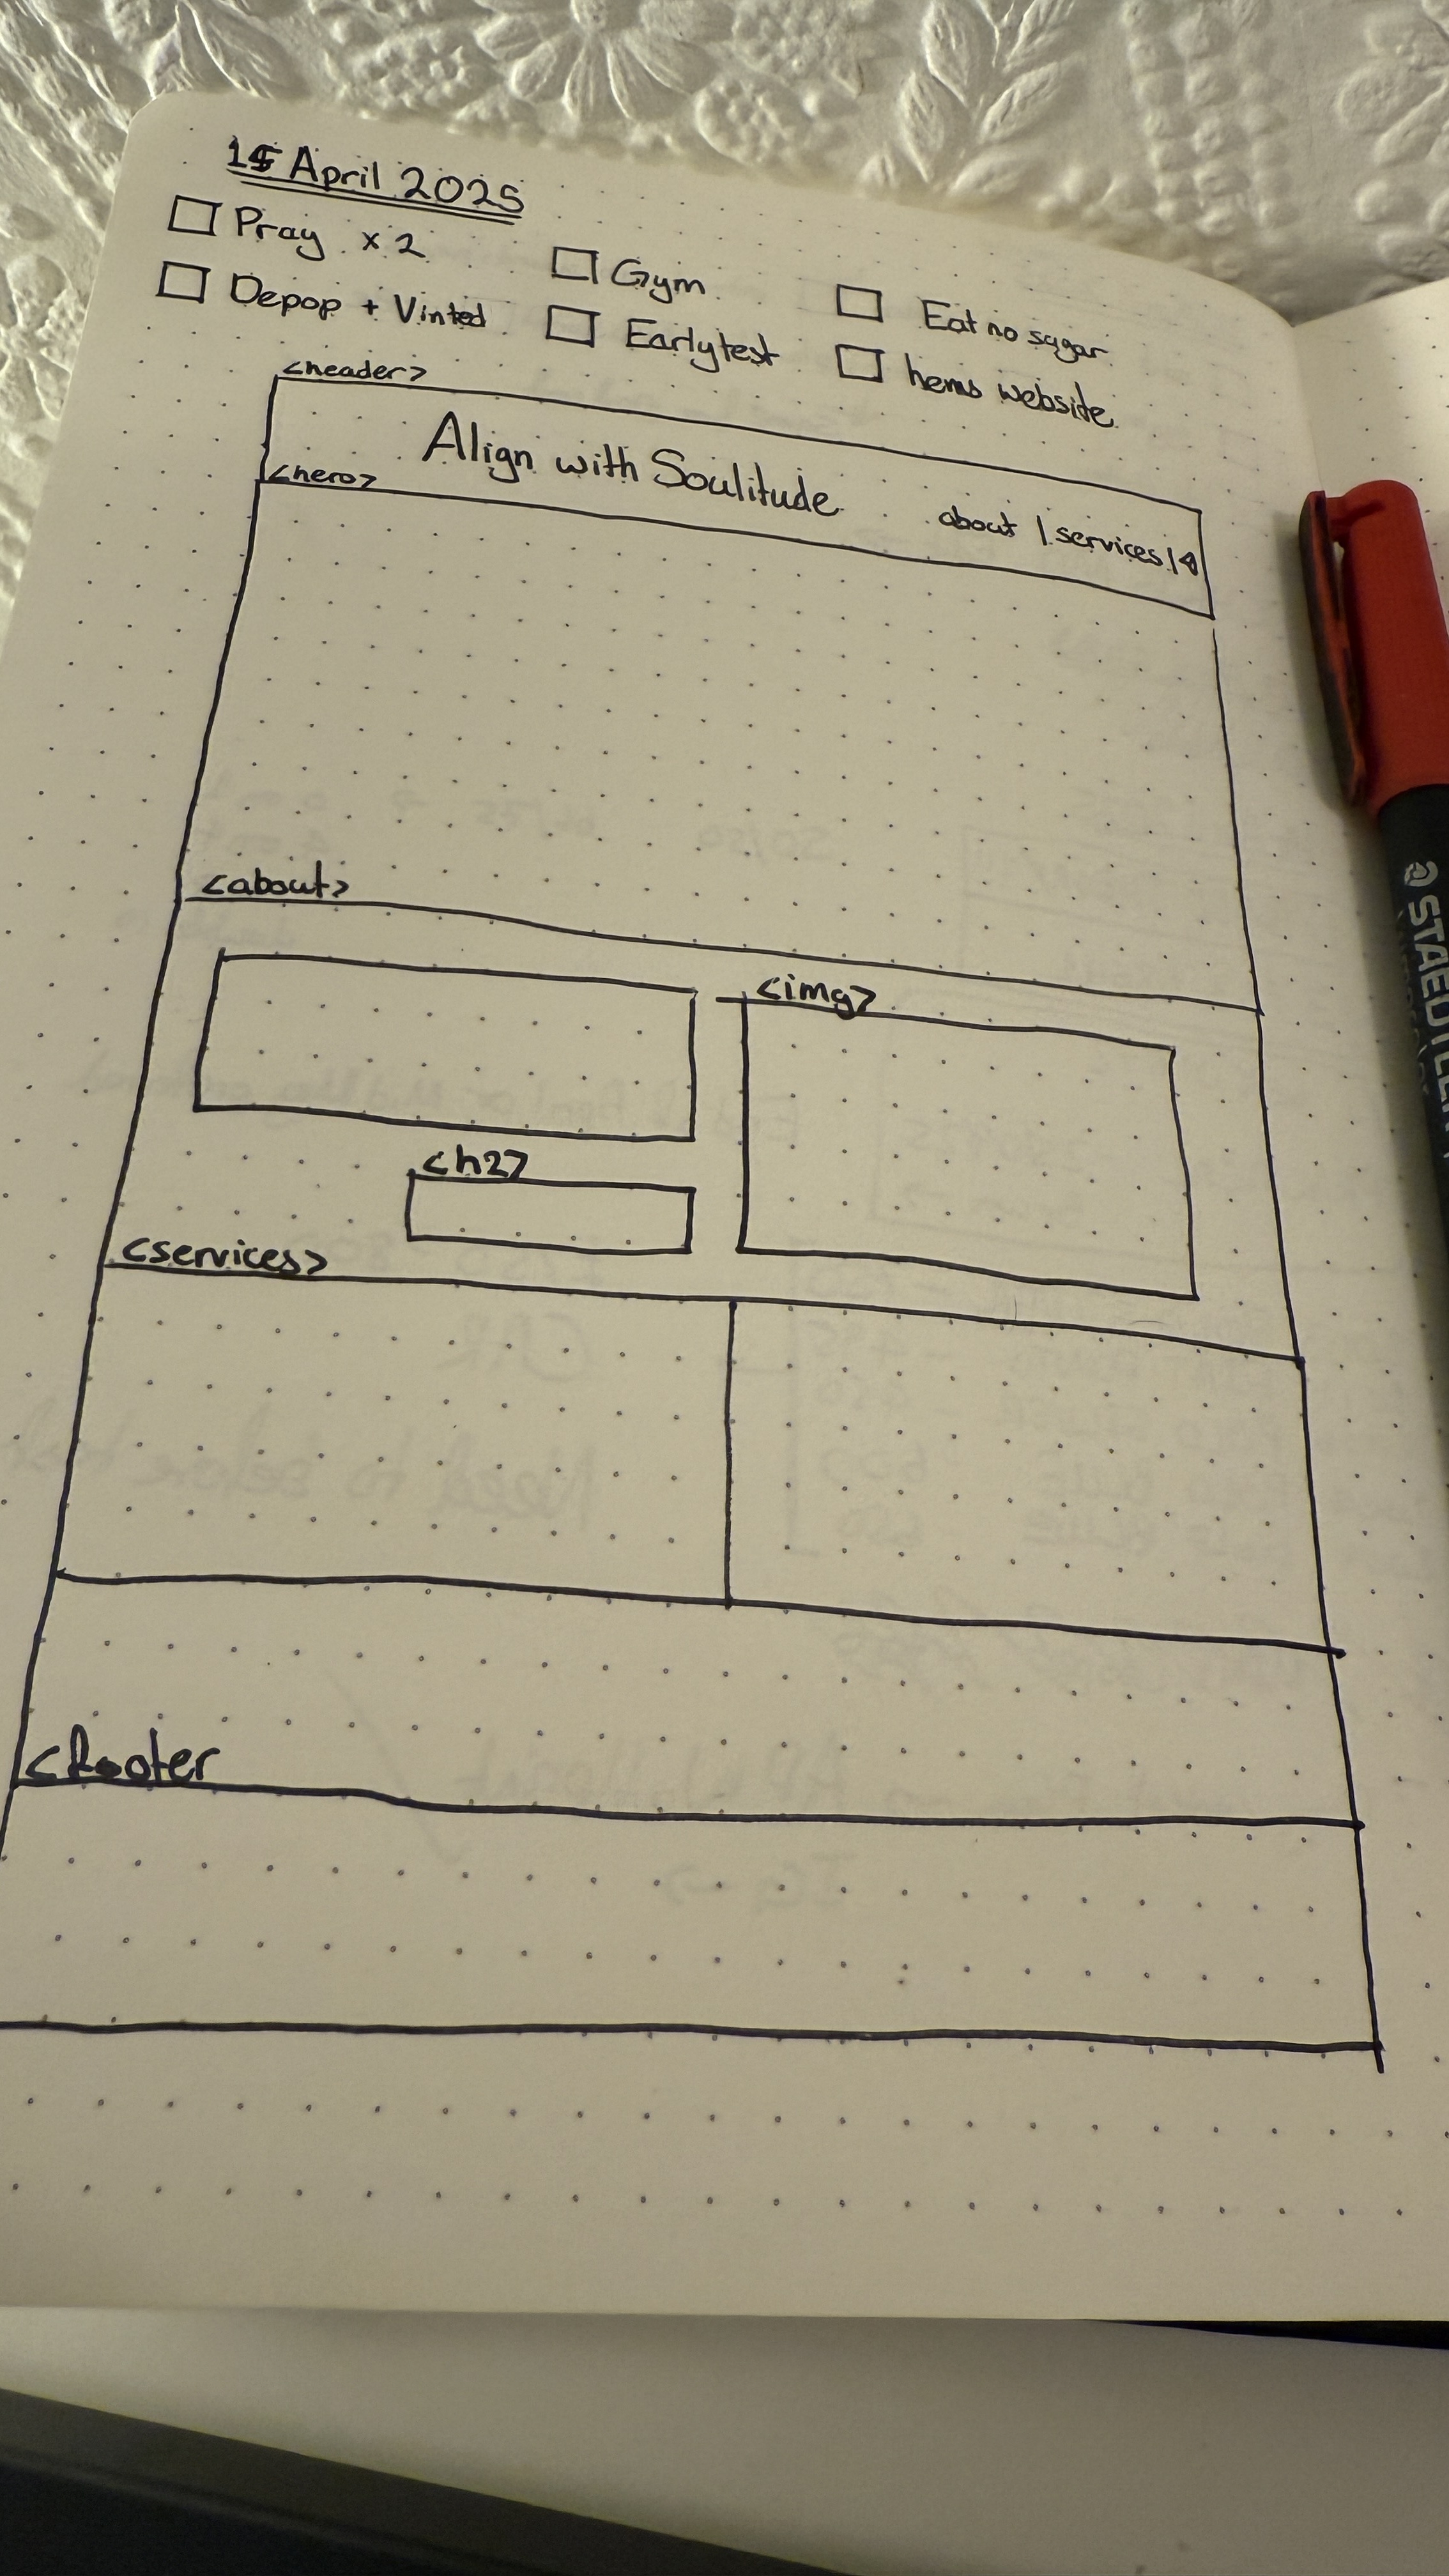 15 April 2025
Pray x2
Gym
Eat no sugar
Depop + Vinted
Early test
hems website
<header>
Align with Soulitude
about | services |
<hero>
<about>
<img>
<h2>
<services>
<footer
STAEDTLER